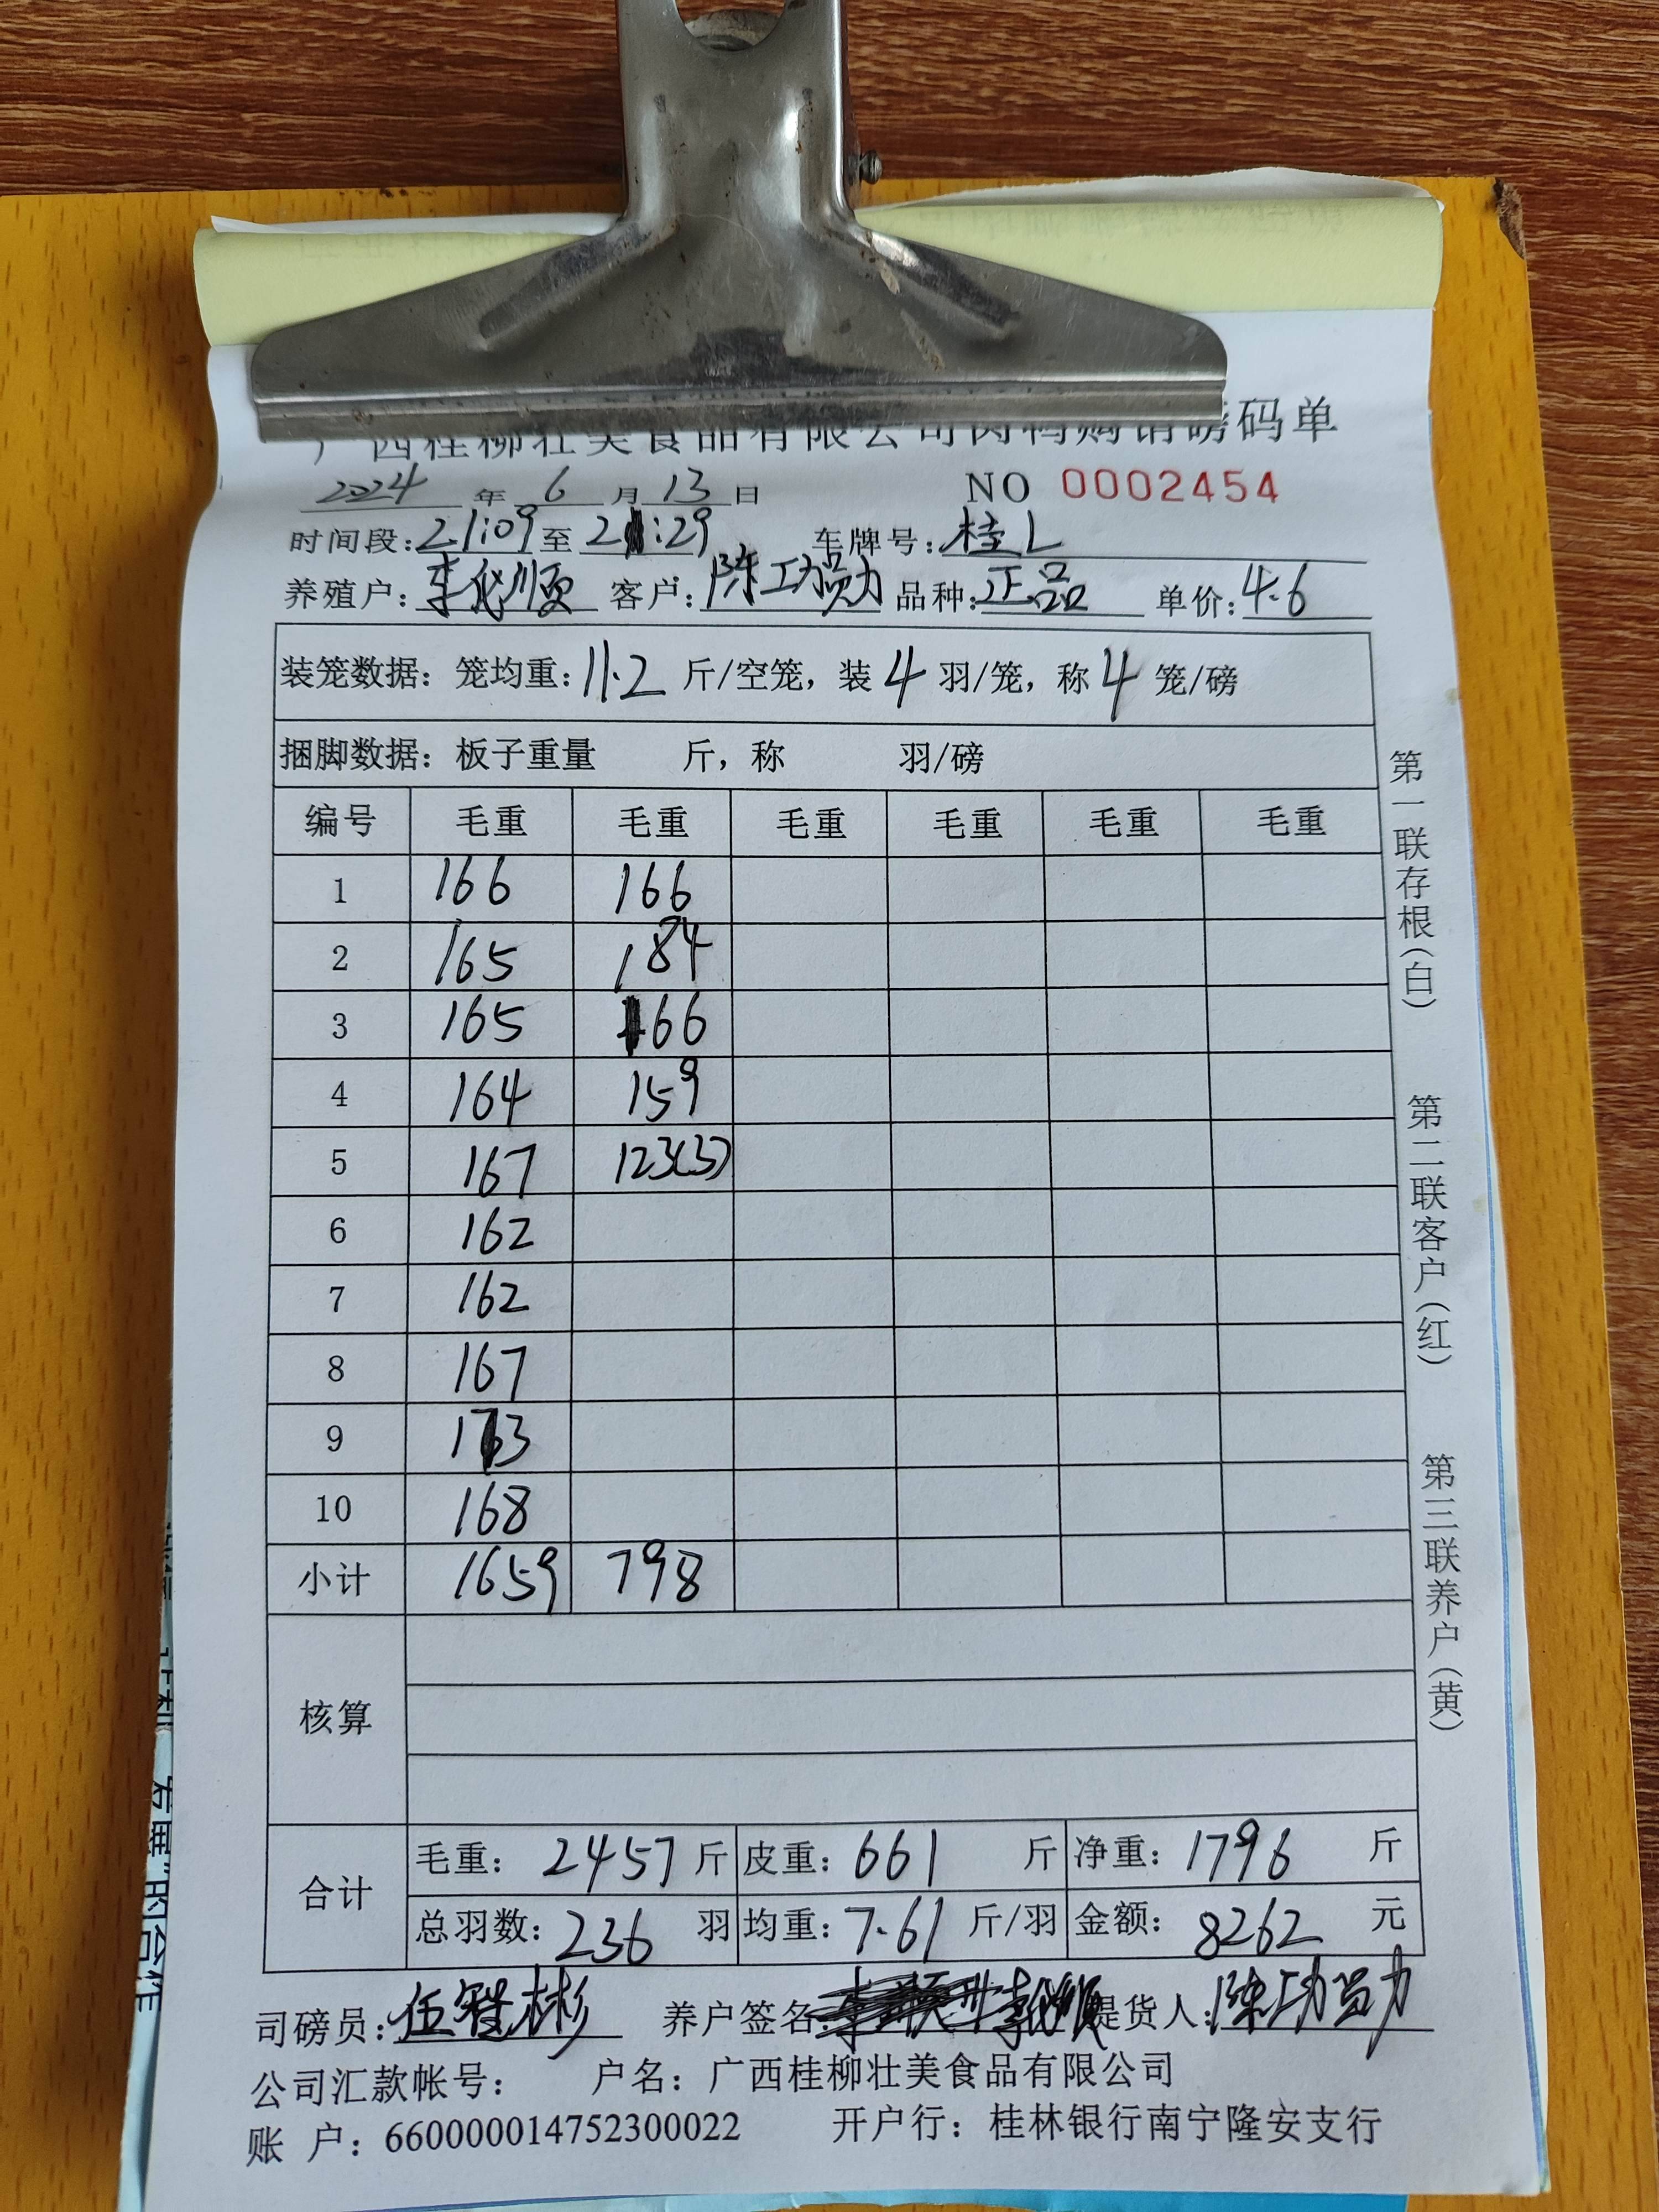 广西桂柳壮美食品有限公司肉鸭购销磅码单
2024 年 6 月 13 日 NO 0002454
时间段: 21:09 至 21:29 车牌号: 桂L
养殖户: 李顺 客户: 陈工勋 品种: 正品 单价: 4.6
装笼数据: 笼均重: 11.2 斤/空笼, 装 4 羽/笼, 称 4 笼/磅
捆脚数据: 板子重量 斤, 称 羽/磅
编号 毛重 毛重 毛重 毛重 毛重 毛重
1 166 166
2 165 184
3 165 166
4 164 159
5 167 123(3)
6 162
7 162
8 167
9 173
10 168
小计 1659 798
核算
合计
毛重: 2457 斤 皮重: 661 斤 净重: 1796 斤
总羽数: 236 羽 均重: 7.61 斤/羽 金额: 8262 元
司磅员: 伍智彬 养户签名: 提货人: 陈功勋
公司汇款帐号: 户名: 广西桂柳壮美食品有限公司
账 户: 660000014752300022 开户行: 桂林银行南宁隆安支行
第一联存根(白)
第二联客户(红)
第三联养户(黄)
发展"的合作